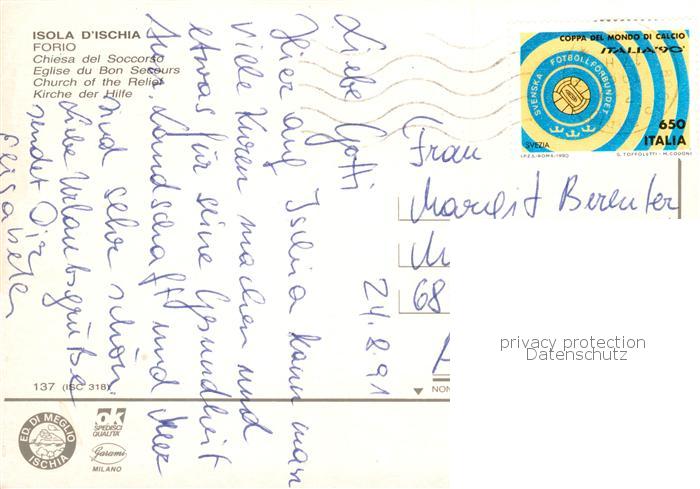 ISOLA D'ISCHIA
FORIO
Chiesa del Soccorso
Eglise du Bon Secours
Church of the Relief
Kirche der Hilfe
24.8.91
Liebe Gotti
Hier auf Ischia kann man
viele Kuren machen und
etwas für seine Gesundheit
tun. Landschaft und Meer
sind sehr schön.
Liebe Urlaubsgrüße
sendet Dir
Elisabeth
COPPA DEL MONDO DI CALCIO
ITALIA '90
SVENSKA FOTBOLLFÖRBUNDET
650
ITALIA
SVEZIA
I.P.Z.S.-ROMA-1990
S. TOFFOLETTI - M. CODONI
Frau
Margit Berenter
M
68
A
privacy protection
Datenschutz
137 (ISC 318)
NON
ED. DI MEGLIO
ISCHIA
ok
SPEDISCI
QUALITA'
Garami
MILANO